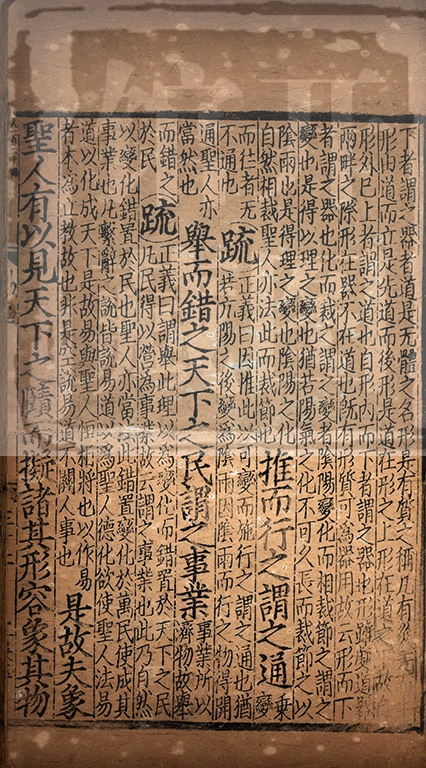 下者謂之器者道是无體之名形是有質之稱凡有從无而
形由道而立是先道而後形是道在形之上形在道之下故自
形外已上者謂之道也自形内而下者謂之器也形雖處道器
兩畔之際形在器不在道也既有形質可為器用故云形而下
者謂之器也化而裁之謂之變者陰陽變化而相裁節之謂之
變也是得以理之變也猶若陽氣之化不可久長而裁節之以
陰雨也是得理之變也陰陽之化
自然相裁聖人亦法此而裁節也
推而行之謂之通
乘
變
而往者无
不通也
疏
正義曰因推此以可變而施行之謂之通也猶
若亢陽之後變為陰雨因陰雨而行之物得開
通聖人亦
當然也
舉而錯之天下之民謂之事業
事業所以
濟物故舉
而錯之
於民
疏
正義曰謂舉此理以為變化而錯置於天下之民
凡民得以營為事業故云謂之事業也此乃自然
以變化錯置於民也聖人亦當法此錯置變化於萬民使成其
事業也凡繫辭之說皆說易道以為聖人德化欲使聖人法易
道以化成天下是故易與聖人恒相將也以作易
者本為立教故也非是空說易道不關人事也
是故夫象
聖人有以見天下之賾而擬諸其形容象其物